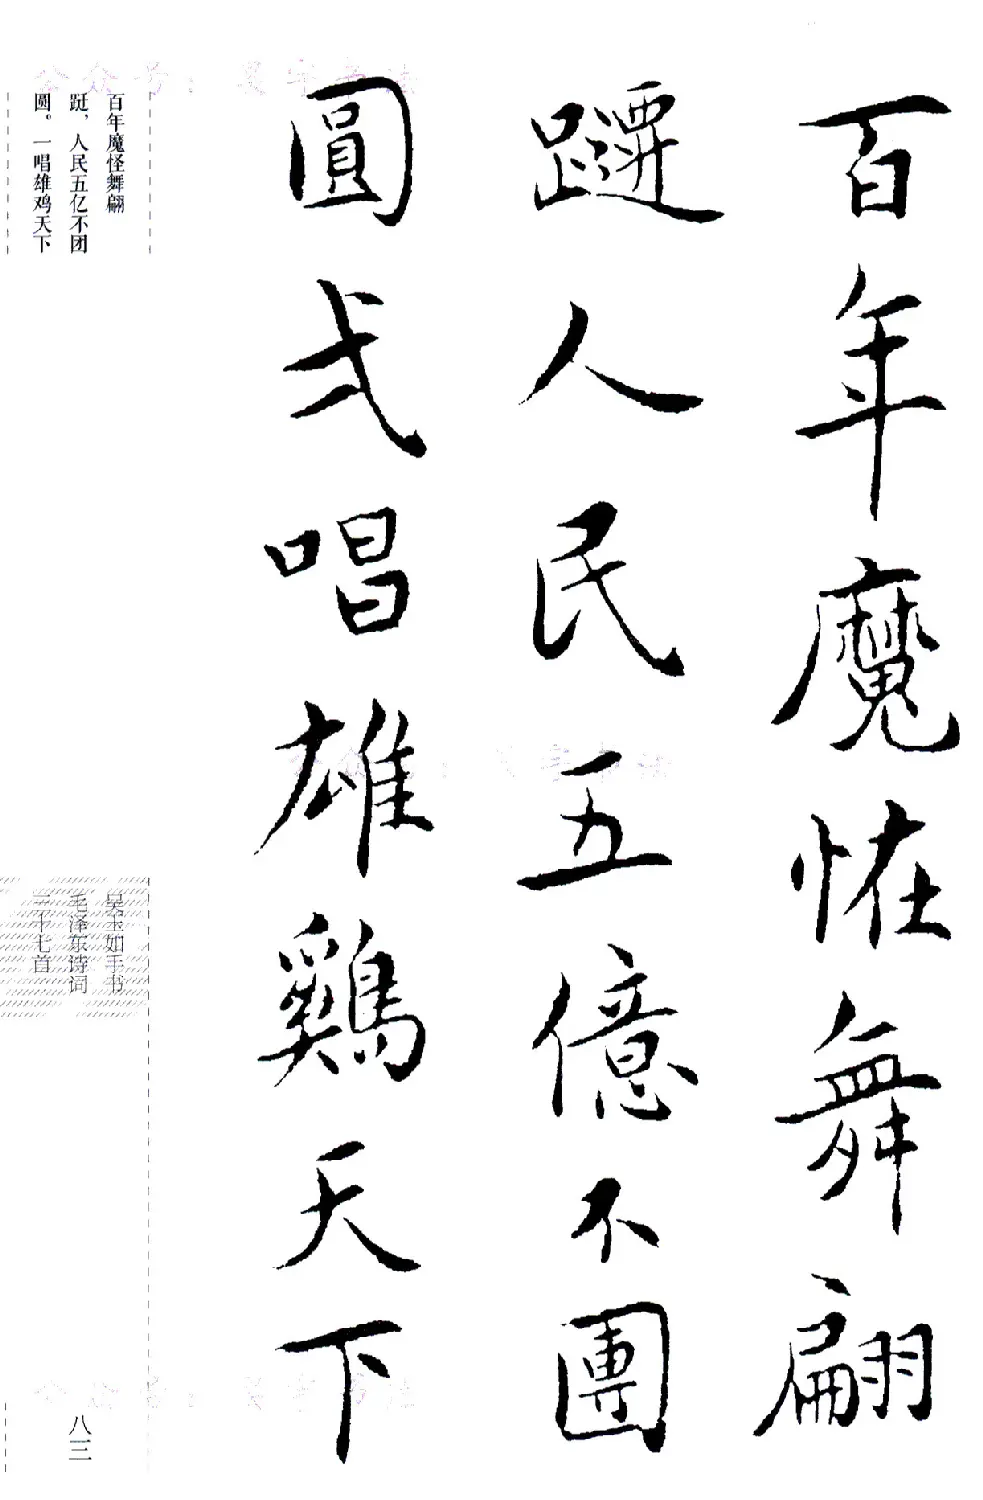 百年魔怪舞翩
躚人民五億不團
圓弌唱雄鷄天下
百年魔怪舞翩
跹，人民五亿不团
圆。一唱雄鸡天下
吴玉如手书
毛泽东诗词
三十七首
八三